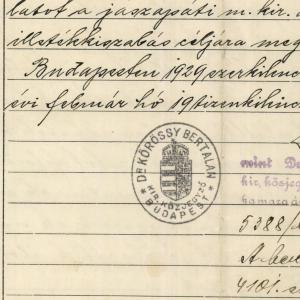 latot a jászapáti m. kir.
illetékkiszabás céljára meg
Budapesten 1929 ezerkilenc
évi február hó 19 tizenkilenc
DR KŐRÖSSY BERTALAN
KIR. KÖZJEGYZŐ
* BUDAPEST *
mint De
kir. közjeg
kamarza
5388/
A bea
4181. s